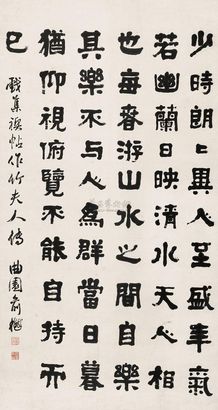 少時朗々異人至盛年氣
若幽蘭日映清水天人相
也每春游山水之間自樂
其樂不与人爲群當日暮
猶仰視俯覽不能自持而
已
戲集禊帖作竹夫人傳 曲園俞樾